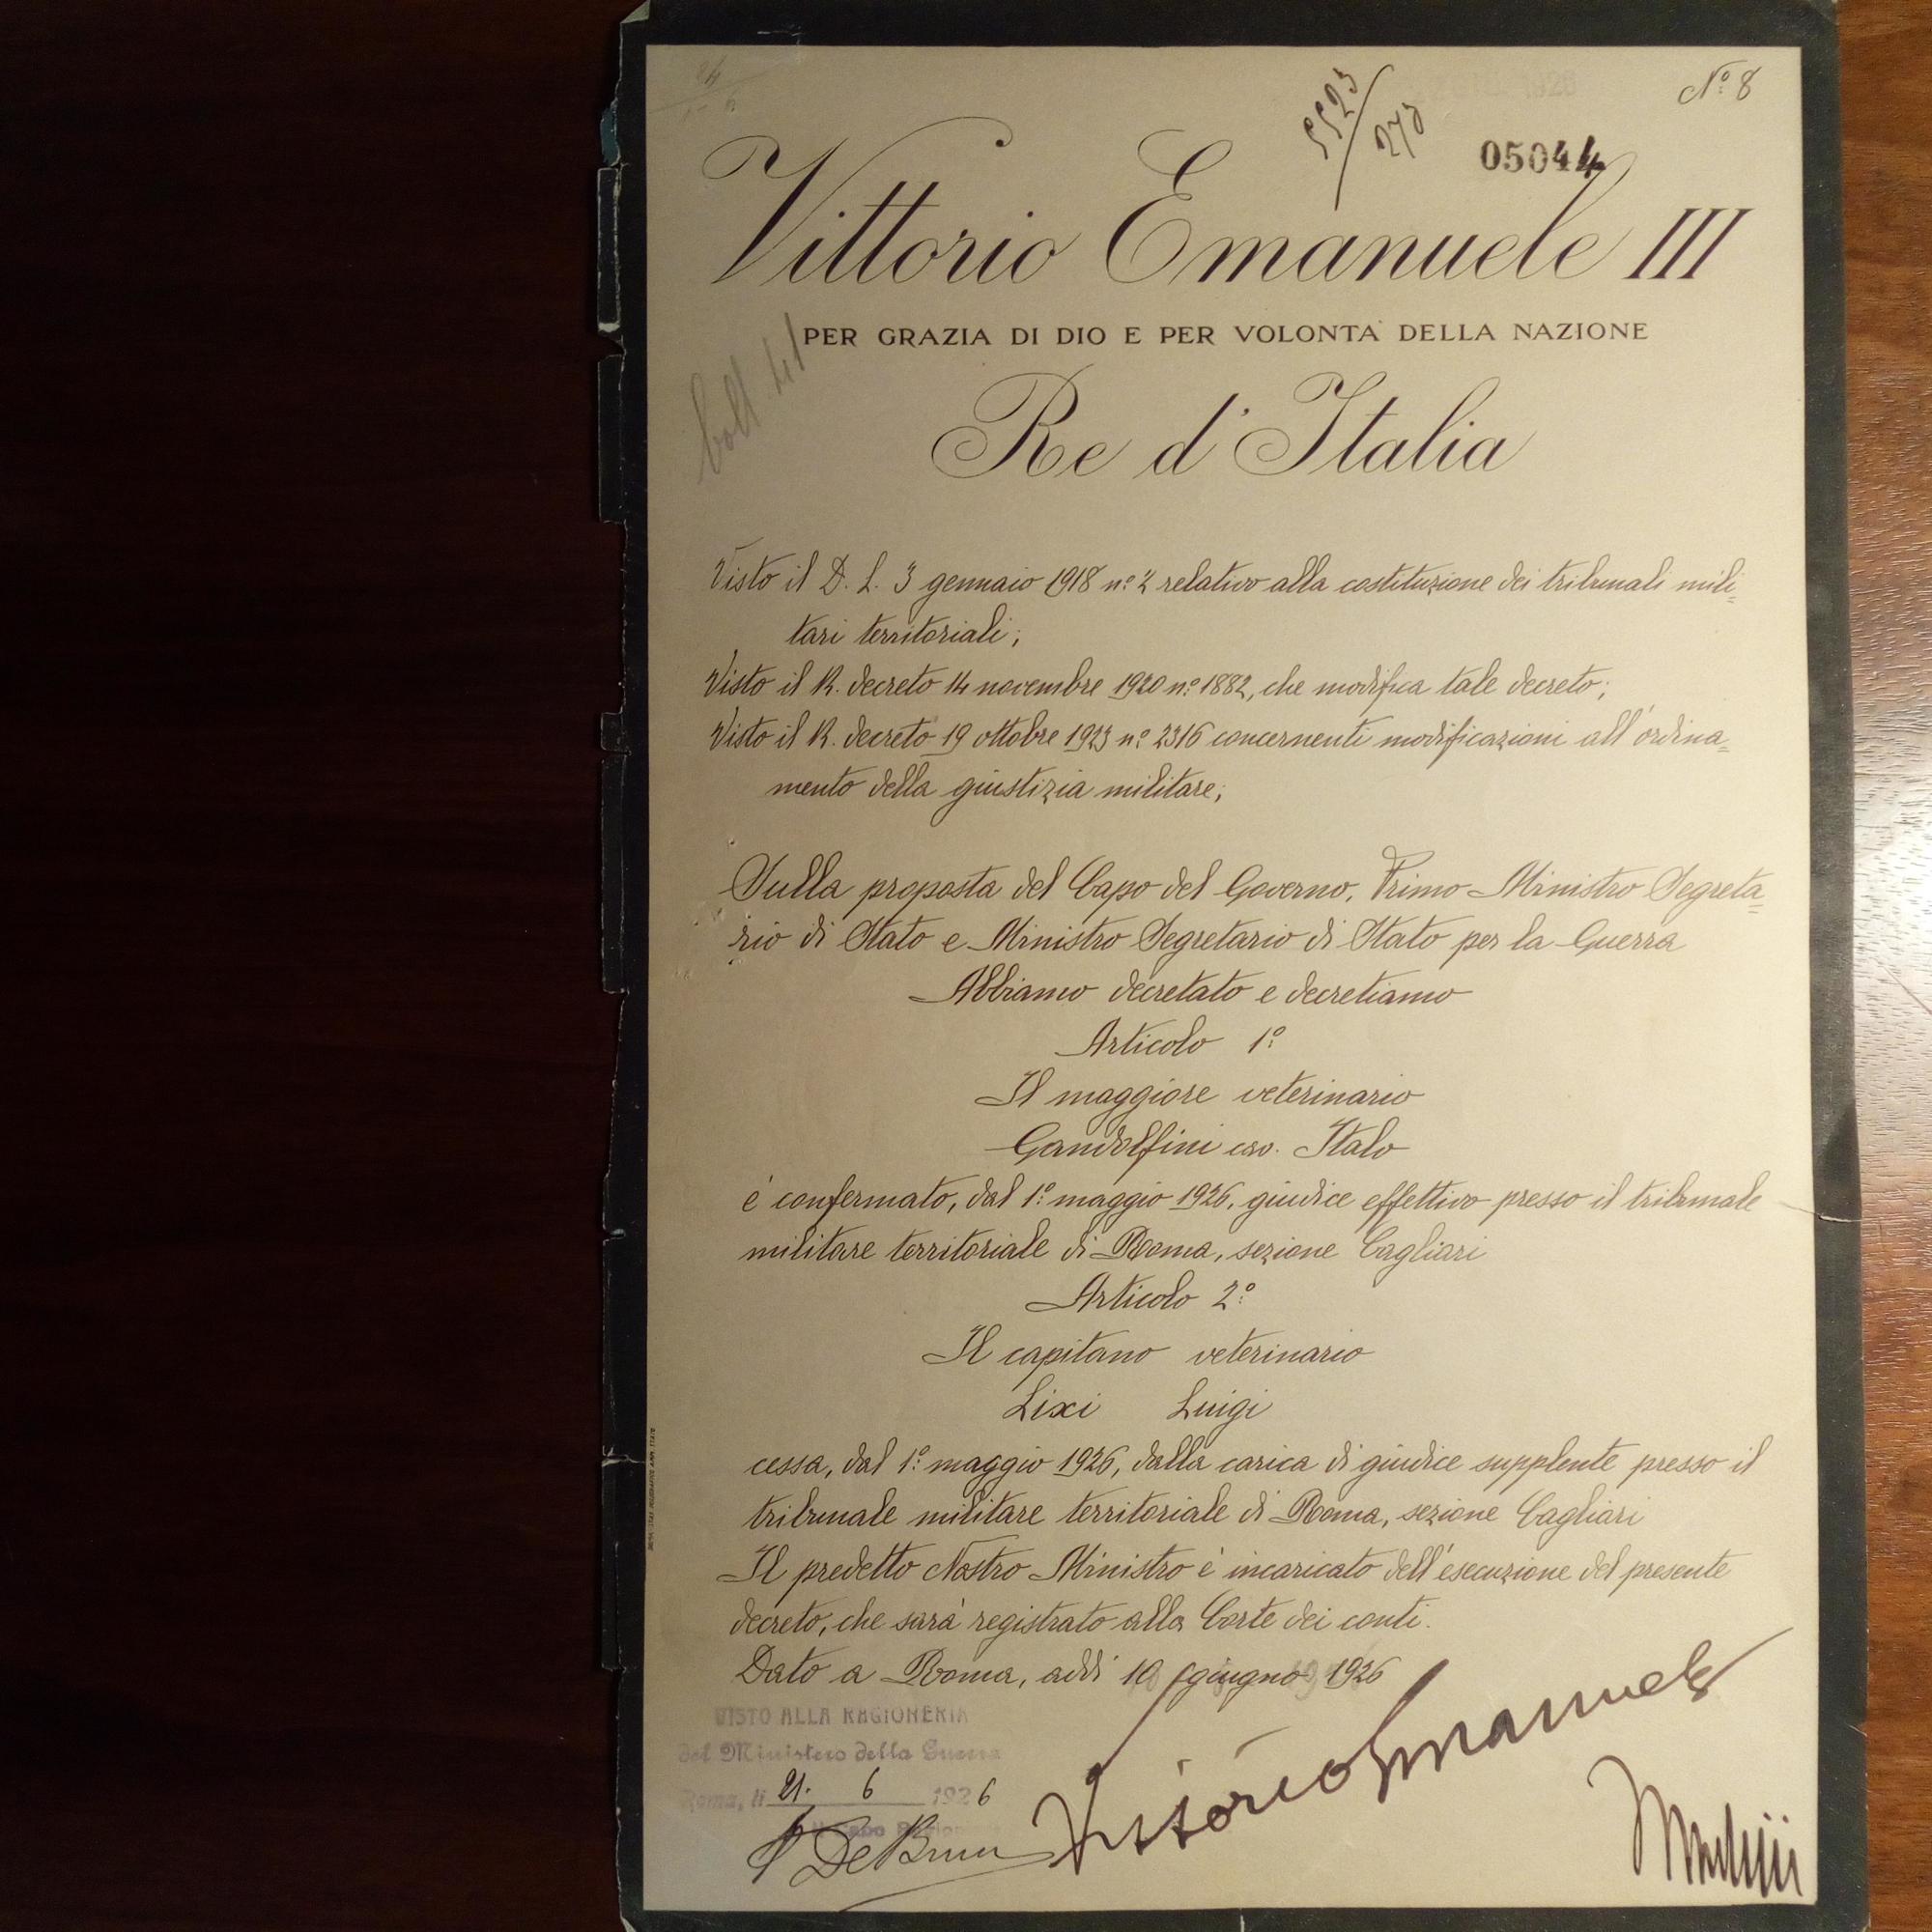 Nº 8
5523/273
05044
Vittorio Emanuele III
PER GRAZIA DI DIO E PER VOLONTÀ DELLA NAZIONE
boll. 41
Re d'Italia
Visto il D. L. 3 gennaio 1918 nº 2 relativo alla costituzione dei tribunali mili=
tari territoriali;
Visto il R. decreto 14 novembre 1920 nº 1882, che modifica tale decreto;
Visto il R. decreto 19 ottobre 1923 nº 2316 concernenti modificazioni all'ordina=
mento della giustizia militare;
Sulla proposta del Capo del Governo, Primo Ministro Segreta=
rio di Stato e Ministro Segretario di Stato per la Guerra
Abbiamo decretato e decretiamo
Articolo 1º
Il maggiore veterinario
Gandolfini cav. Italo
è confermato, dal 1º maggio 1926, giudice effettivo presso il tribunale
militare territoriale di Roma, sezione Cagliari
Articolo 2º
Il capitano veterinario
Lixi Luigi
cessa, dal 1º maggio 1926, dalla carica di giudice supplente presso il
tribunale militare territoriale di Roma, sezione Cagliari
Il predetto Nostro Ministro è incaricato dell'esecuzione del presente
decreto, che sarà registrato alla Corte dei conti.
Dato a Roma, addì 10 giugno 1926
VISTO ALLA RAGIONERIA
del Ministero della Guerra
Roma, li 21. 6 1926
Il Capo
Vittorio Emanuele
Mussolini